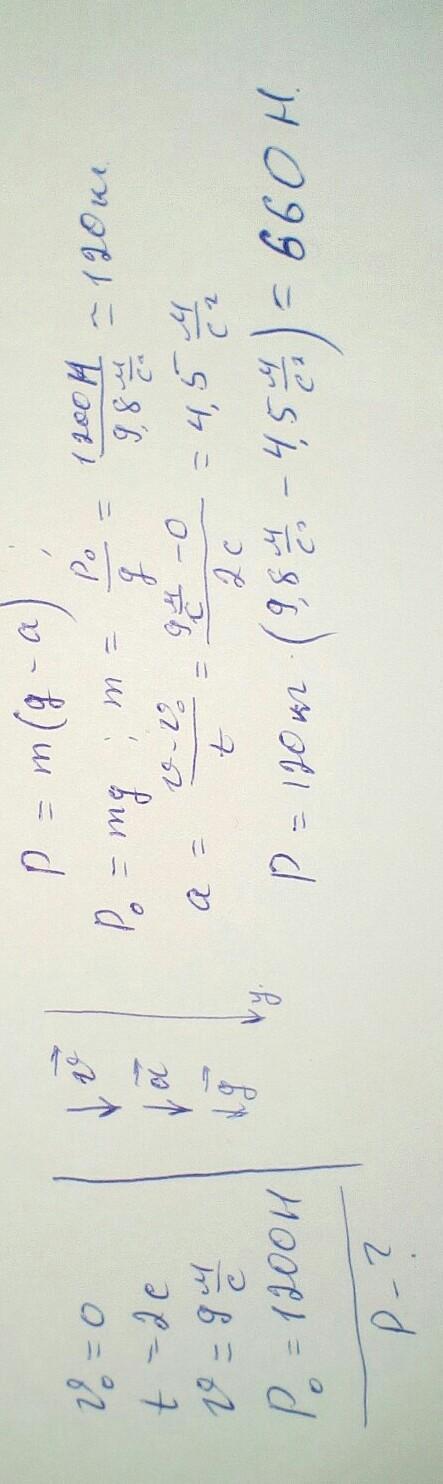 v₀ = 0
t = 2с
v = 9 м/с
P₀ = 1200Н
P - ?
v⃗
a⃗
g⃗
y
P = m(g - a)
P₀ = mg ; m = P₀/g = 1200Н / 9,8 м/с² = 120кг.
a = (v - v₀)/t = (9 м/с - 0)/2с = 4,5 м/с²
P = 120кг · (9,8 м/с² - 4,5 м/с²) = 660 Н.